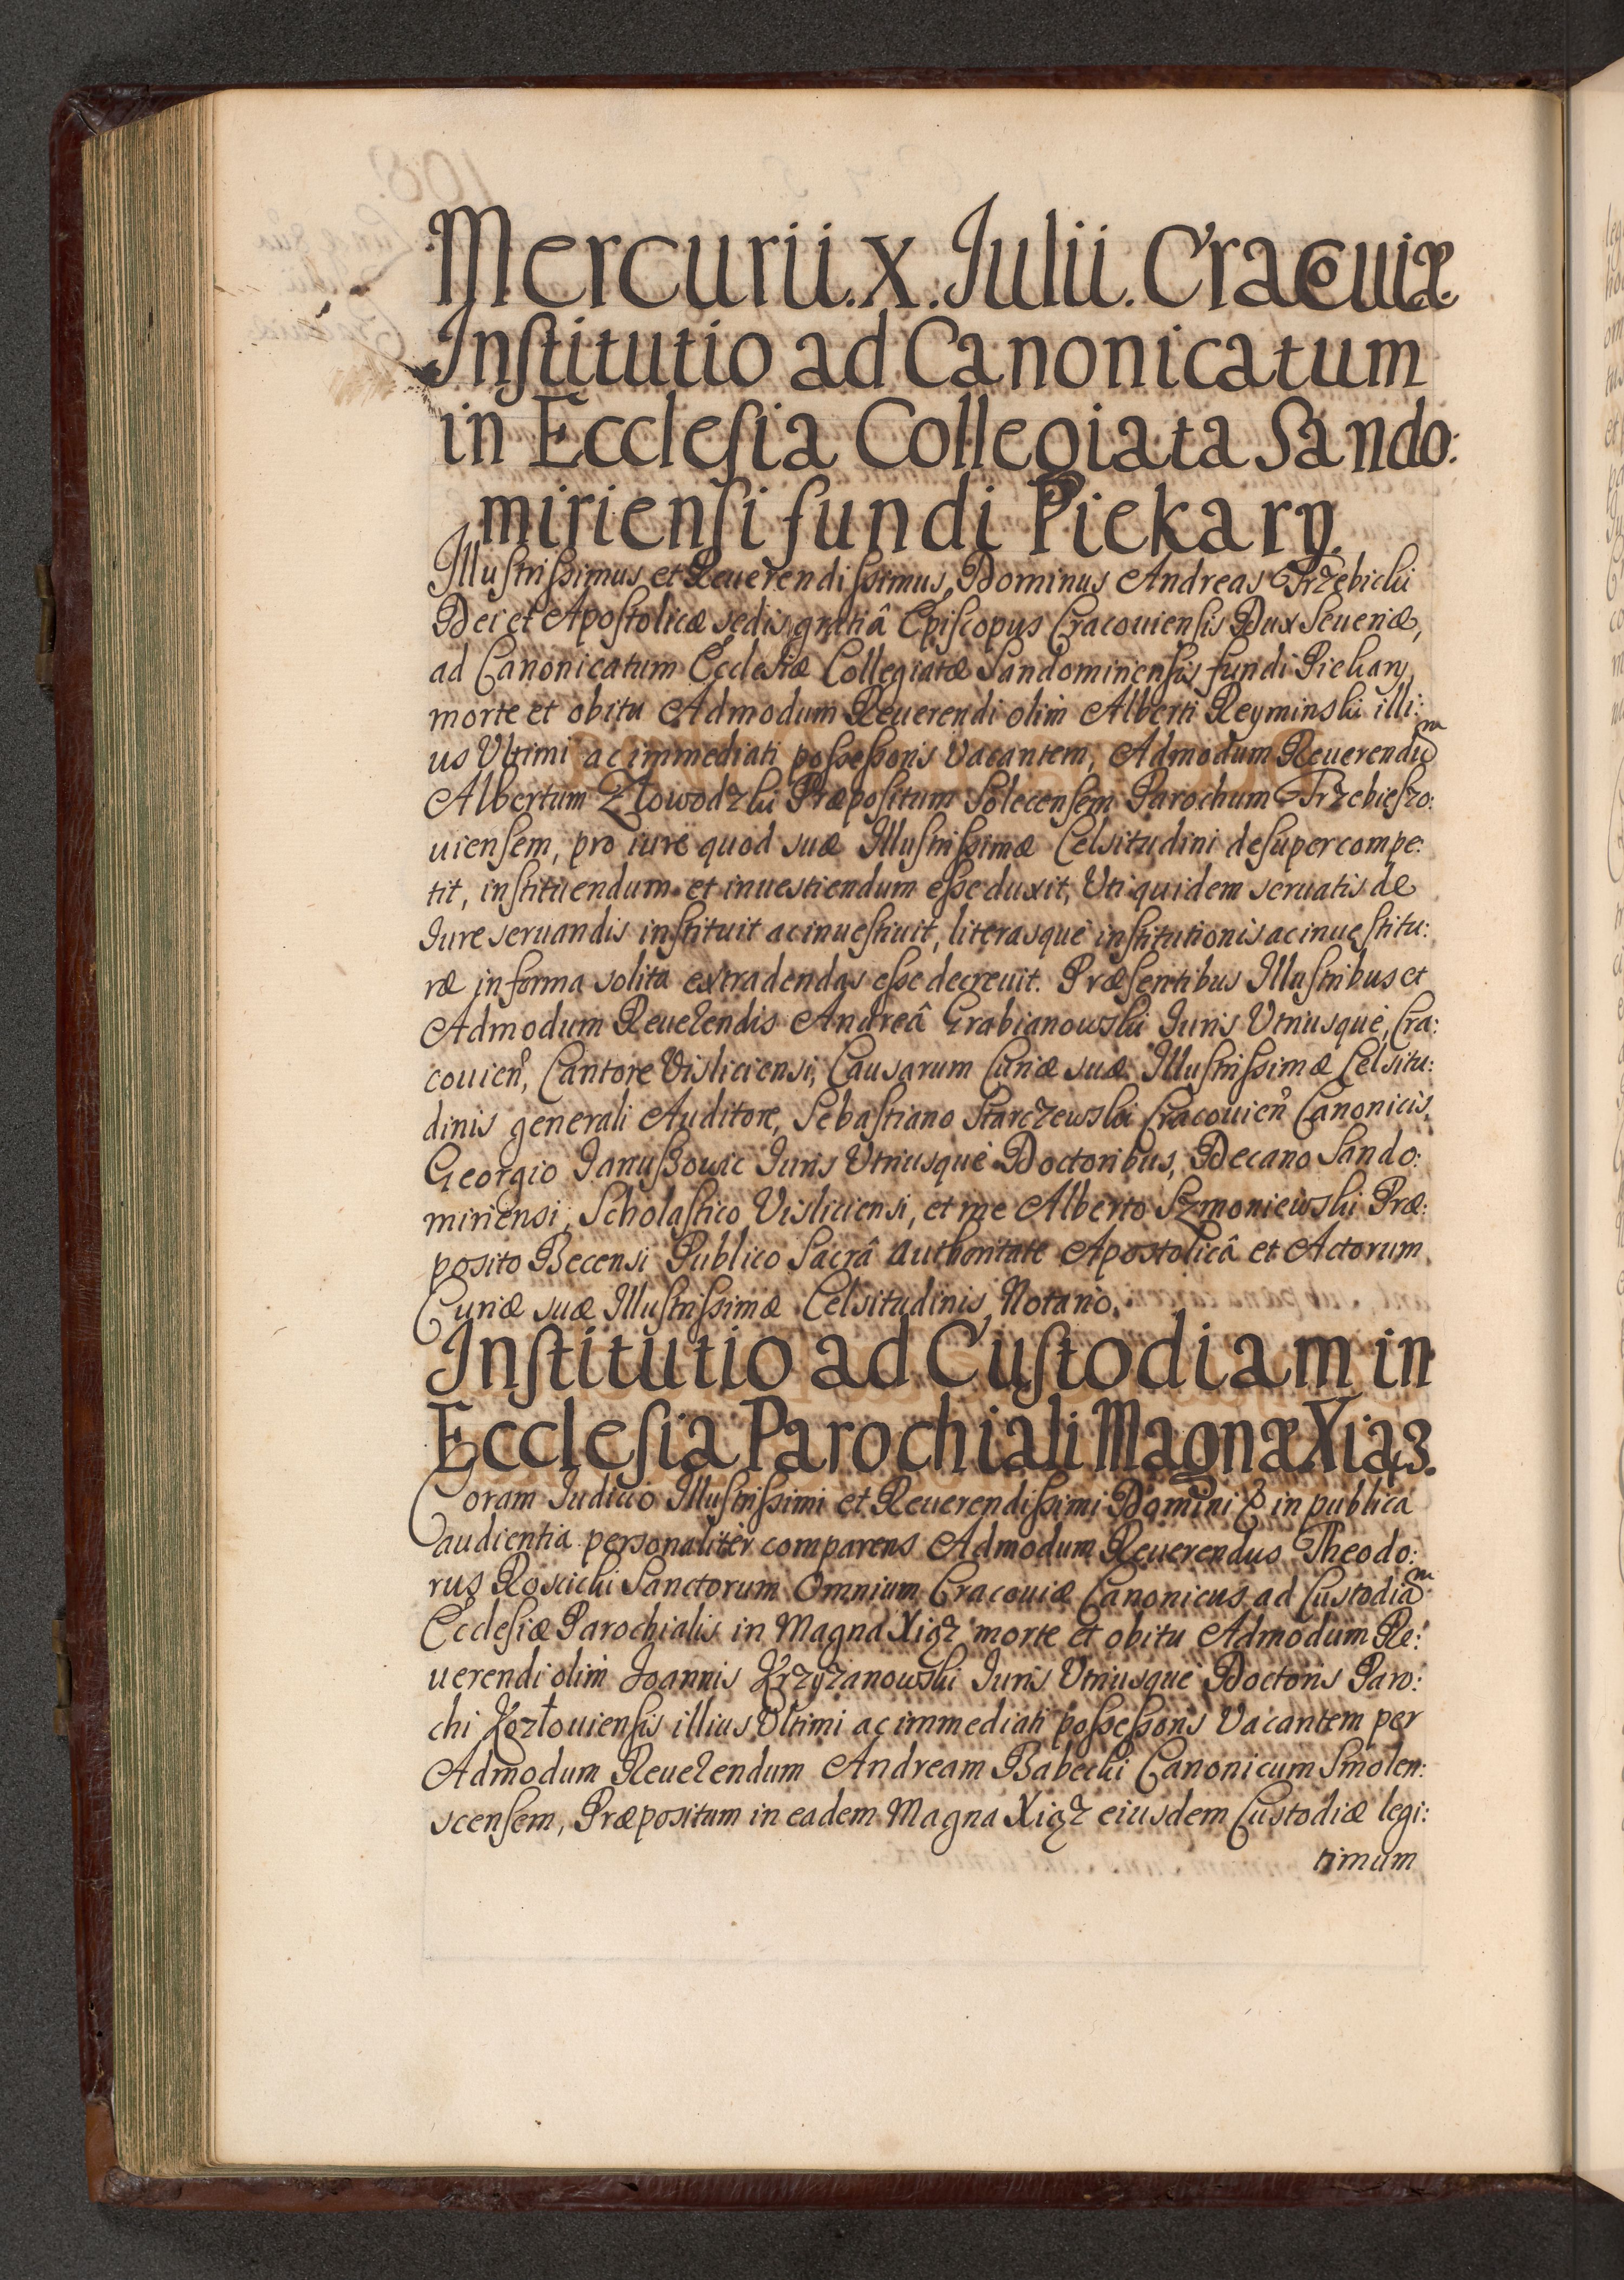 Mercurii. X. Julii. Cracouiæ.
Inſtitutio ad Canonicatum
in Eccleſia Collegiata Sando:
mirienſi fundi Piekary.
Illuſtriſsimus et Reuerendiſsimus Dominus Andreas Trzebicki
Dei et Apoſtolicæ sedis gratiâ Epiſcopus Cracouienſis Dux Seueriæ,
ad Canonicatum Eccleſiæ Collegiatæ Sandomirienſis fundi Piekary
morte et obitu Admodum Reuerendi olim Alberti Reyminski illi:
us Vltimi ac immediati poſseſsoris Vacantem, Admodum Reuerendum
Albertum Zlowodzki Præpoſitum Solecenſem Parochum Trzebieſzo:
uienſem, pro iure quod suæ Illuſtriſsimæ Celsitudini deſuper compe:
tit, inſtituendum et inuestiendum eſse duxit, Vti quidem seruatis de
Iure seruandis inſtituit ac inueſtiuit, literasque inſtitutionis ac inueſtitu:
ræ in forma solita extradendas eſse decreuit. Præſentibus Illuſtribus et
Admodum Reuerendis Andreâ Grabianowski Iuris Vtriusque, Cra:
couien, Cantore Visliciensi, Causarum Curiæ suæ Illuſtriſsimæ Celsitu:
dinis generali Auditore, Sebaſtiano Starczewski Cracouien Canonicis,
Georgio Januſzouic Iuris Vtriusque Doctoribus, Decano Sando:
miriensi, Scholaſtico Visliciensi, et me Alberto Szmoniewski Præ:
posito Becensi Publico Sacrâ authoritate Apostolicâ et Actorum
Curiæ suæ Illuſtriſsimæ Celsitudinis Notario.
Inſtitutio ad Cuſtodiam in
Eccleſia Parochiali Magnæ Xiąz.
Coram Iudicio Illuſtriſsimi et Reuerendiſsimi Domini & in publica
audientia personaliter comparens Admodum Reuerendus Theodo:
rus Roscicki Sanctorum Omnium Cracouiæ Canonicus ad Custodiam
Eccleſiæ Parochialis in Magna Xiąz morte et obitu Admodum Re:
uerendi olim Joannis Krzyzanowski Iuris Vtriusque Doctoris Paro:
chi Kozłouienſis illius Vltimi ac immediati poſseſsoris Vacantem per
Admodum Reuerendum Andream Babecki Canonicum Smolen:
scenſem, Præpositum in eadem Magna Xiąz eiusdem Custodiæ legi:
timum